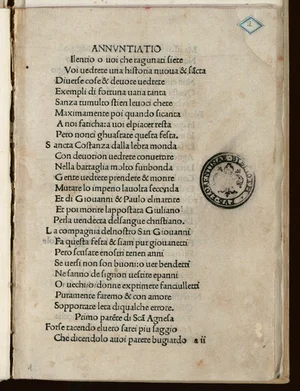 ANNVNTIATIO
Ilentio o uoi che ragunati siete
Voi uedrete una historia nuoua & sãcta
Diuerse cose & deuote uedrete
Exempli di fortuna uaria tanta
Sanza tumulto stien leuoci chete
Maximamente poi quando sicanta
A noi faticha: a uoi elpiacer resta
Pero nonci ghuastate questa festa.
Sancta Costanza dalla lebra monda
Con deuotion uedrete conuertire
Nella battaglia molto furibonda
Gente uedrete prendere & morire
Mutare lo imperio lauolta secunda
Et di Giouanni & Paulo elmartire
Et poi morire lappostata Giuliano
Perla uendecta delsangue christiano.
La compagnia delnostro San Giouanni
Fa questa festa & siam pur giouanetti
Pero scusate enostri teneri anni
Se uersi non son buoni: o uer bendetti
Ne sanno de signori uestire epanni
O uecchi o donne exprimere fanciulletti
Puramente faremo & con amore
Sopportate lera di qualche errore.
Primo parẽte di Scã Agnesa
Forse tacendo eluero sarei piu saggio
Che dicendolo auoi parere bugiardo a ii